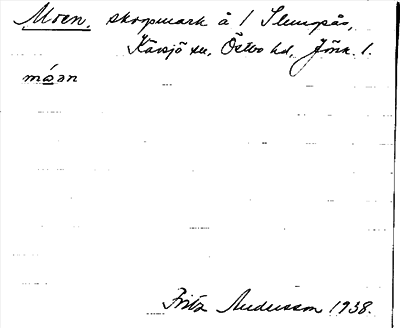 Moen, skogsmark å 1 Slungsås,
Kävsjö sn, Östbo hd, Jönk. l.
móən
Fritz Andersson 1938.